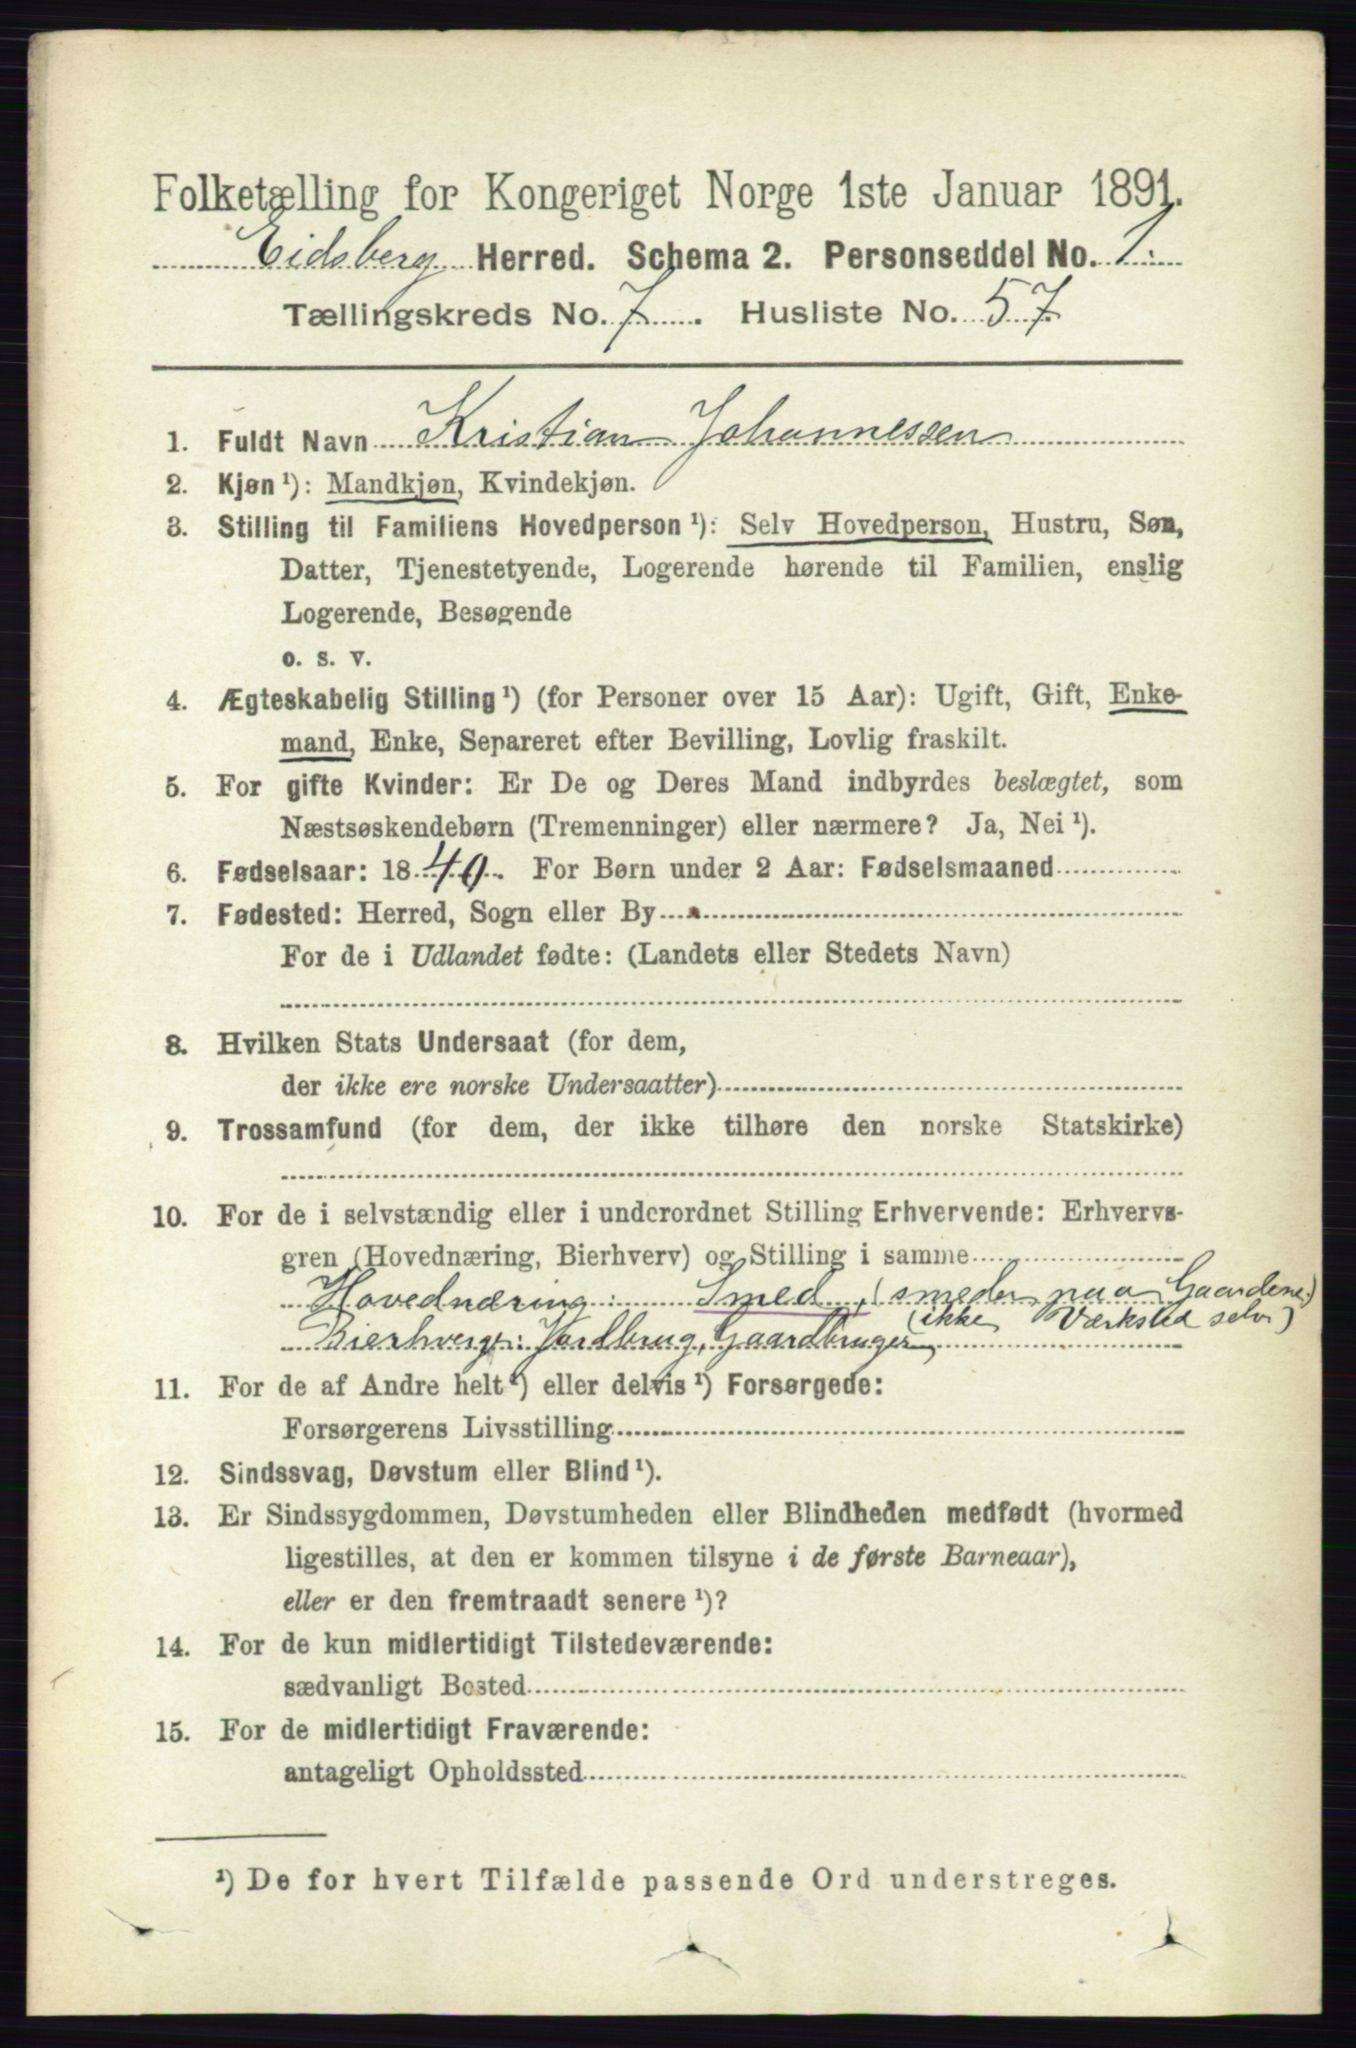 Folketælling for Kongeriget Norge 1ste Januar 1891.
Eidsberg Herred. Schema 2. Personseddel No. 1.
Tællingskreds No. 7. Husliste No. 57.
1. Fuldt Navn Kristian Johannessen
2. Kjøn ¹): Mandkjøn, Kvindekjøn.
3. Stilling til Familiens Hovedperson ¹): Selv Hovedperson, Hustru, Søn,
Datter, Tjenestetyende, Logerende hørende til Familien, enslig
Logerende, Besøgende
o. s. v.
4. Ægteskabelig Stilling ¹) (for Personer over 15 Aar): Ugift, Gift, Enke-
mand, Enke, Separeret efter Bevilling, Lovlig fraskilt.
5. For gifte Kvinder: Er De og Deres Mand indbyrdes beslægtet, som
Næstsøskendebørn (Tremenninger) eller nærmere? Ja, Nei ¹).
6. Fødselsaar: 1840. For Børn under 2 Aar: Fødselsmaaned
7. Fødested: Herred, Sogn eller By
For de i Udlandet fødte: (Landets eller Stedets Navn)
8. Hvilken Stats Undersaat (for dem,
der ikke ere norske Undersaatter)
9. Trossamfund (for dem, der ikke tilhøre den norske Statskirke)
10. For de i selvstændig eller i underordnet Stilling Erhvervende: Erhvervs-
gren (Hovednæring, Bierhverv) og Stilling i samme
Hovednæring: Smed, (smeder paa Gaardene.)
(ikke Værksted selv)
Bierhverv: Jordbrug, Gaardbruger
11. For de af Andre helt ¹) eller delvis ¹) Forsørgede:
Forsørgerens Livsstilling
12. Sindssvag, Døvstum eller Blind ¹).
13. Er Sindssygdommen, Døvstumheden eller Blindheden medfødt (hvormed
ligestilles, at den er kommen tilsyne i de første Barneaar),
eller er den fremtraadt senere ¹)?
14. For de kun midlertidigt Tilstedeværende:
sædvanligt Bosted
15. For de midlertidigt Fraværende:
antageligt Opholdssted
¹) De for hvert Tilfælde passende Ord understreges.